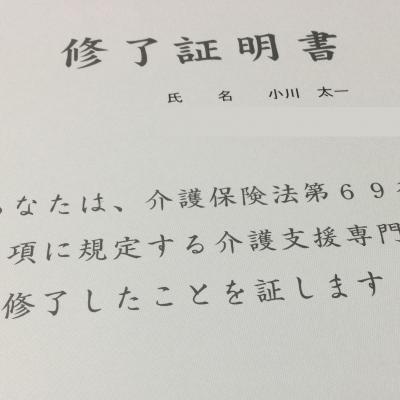 修了証明書
氏 名 小川 太一
なたは、介護保険法第69
項に規定する介護支援専門
修了したことを証します